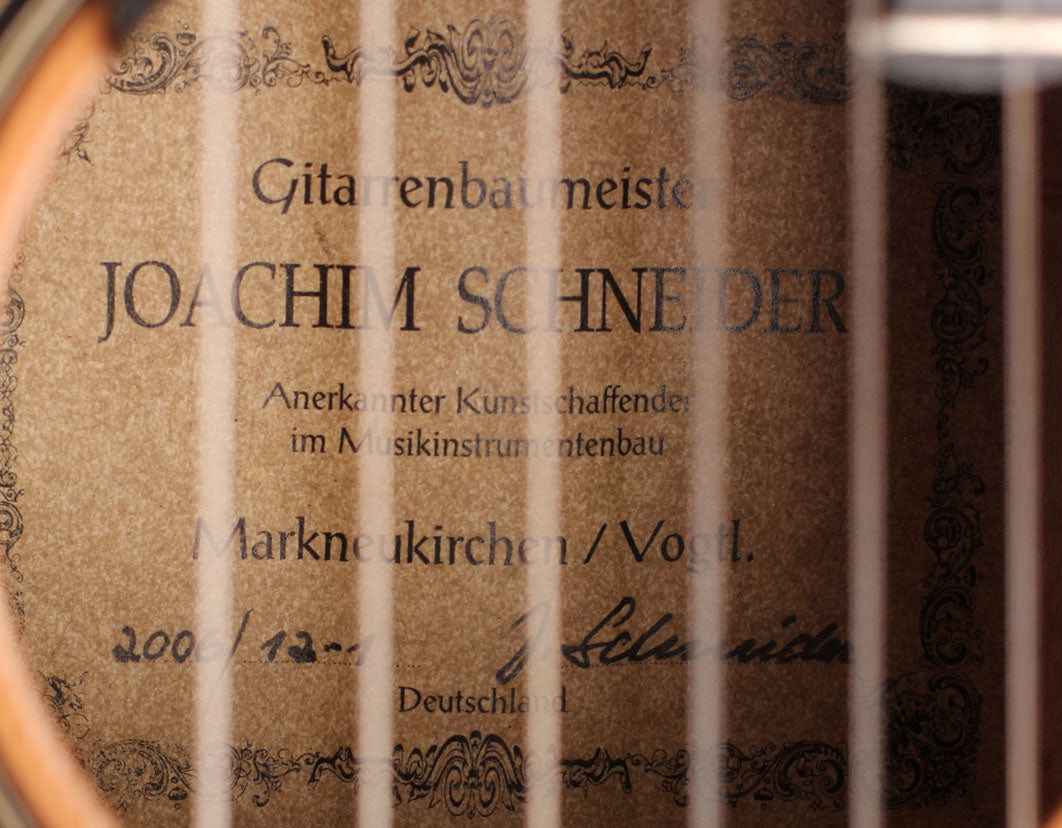 Gitarrenbaumeister
JOACHIM SCHNEIDER
Anerkannter Kunstschaffender
im Musikinstrumentenbau
Markneukirchen / Vogtl.
2006/12-1 J. Schneider
Deutschland